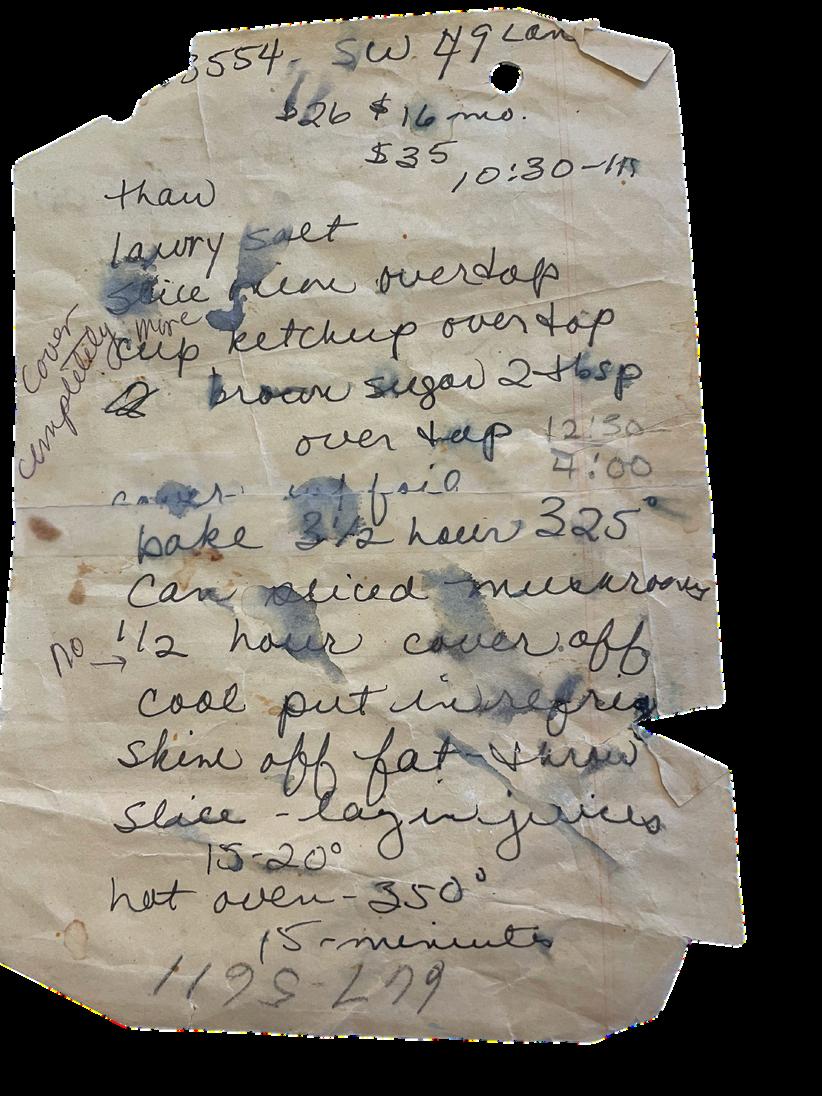 3554 - SW 49 Lan
$26 $16 mo.
$35
10:30 -
thaw
lawry salt
slice over top
cup ketchup over top
more
cover
completely
2 brown sugar 2 tbsp
over top 12:30
4:00
cover foil
bake 3 1/2 hour 325°
Can sliced mushrooms
no → 1/2 hour cover off
cool put in refrig
Skim off fat - throw
slice - lay in juices
15-20°
hot oven - 350°
15 - minutes